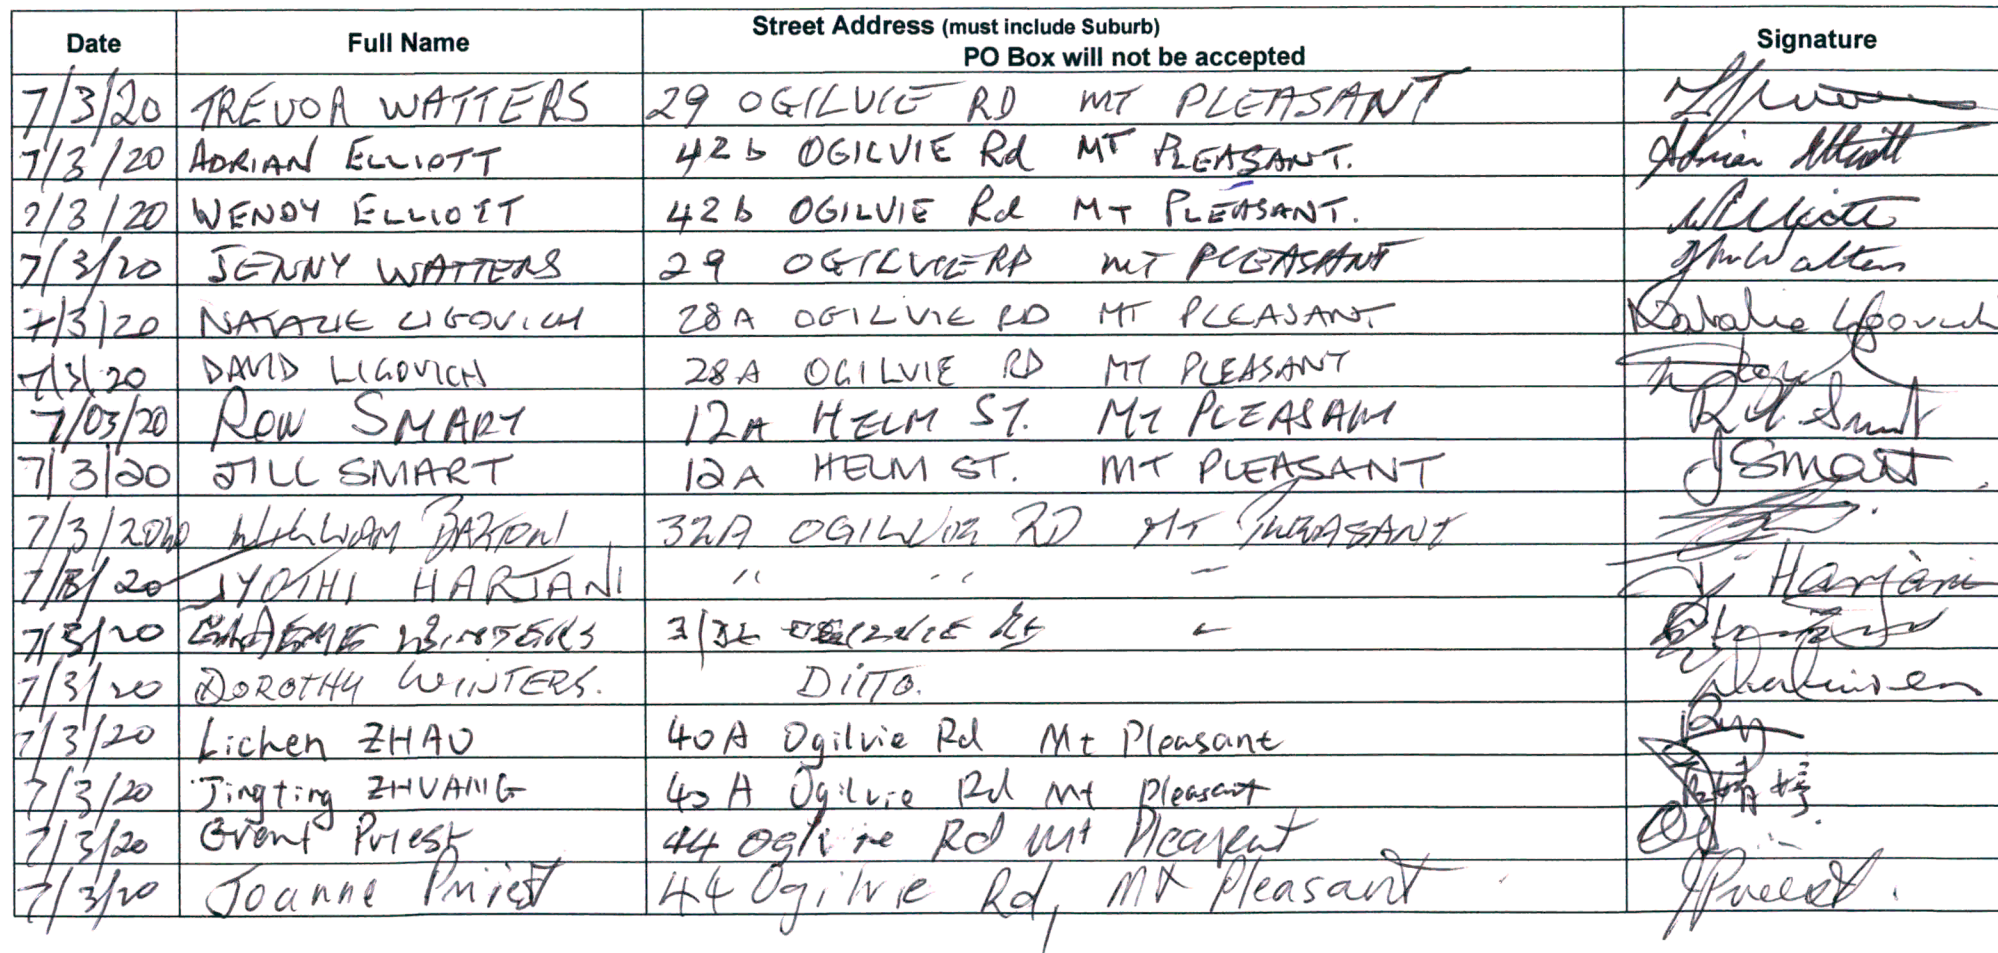 Date Full Name Street Address (must include Suburb) PO Box will not be accepted Signature
7/3/20 TREVOR WATTERS 29 OGILVIE RD MT PLEASANT
7/3/20 ADRIAN ELLIOTT 42b OGILVIE Rd MT PLEASANT. Adrian Elliott
7/3/20 WENDY ELLIOTT 42b OGILVIE Rd MT PLEASANT. W Elliott
7/3/20 JENNY WATTERS 29 OGILVIE RD MT PLEASANT Watters
7/3/20 NATALIE LIGOVICH 28A OGILVIE RD MT PLEASANT Natalie Ligovich
7/3/20 DAVID LIGOVICH 28A OGILVIE RD MT PLEASANT
7/03/20 RON SMART 12A HELM ST. MT PLEASANT R Smart
7/3/20 JILL SMART 12A HELM ST. MT PLEASANT J Smart
7/3/2020 WILLIAM BARTON 32A OGILVIE RD MT PLEASANT
7/3/20 JYOTHI HARJANI " " " Harjani
7/3/20 GRAEME WINTERS OGILVIE Rd "
7/3/20 DOROTHY WINTERS. DITTO.
7/3/20 Lichen ZHAO 40A Ogilvie Rd Mt Pleasant
7/3/20 Jingting ZHUANG 40 A Ogilvie Rd Mt Pleasant 婧婷
7/3/20 Grent Priest 44 Ogilvie Rd Mt Pleasent
7/3/20 Joanne Priest 44 Ogilvie Rd, Mt Pleasant J Priest.